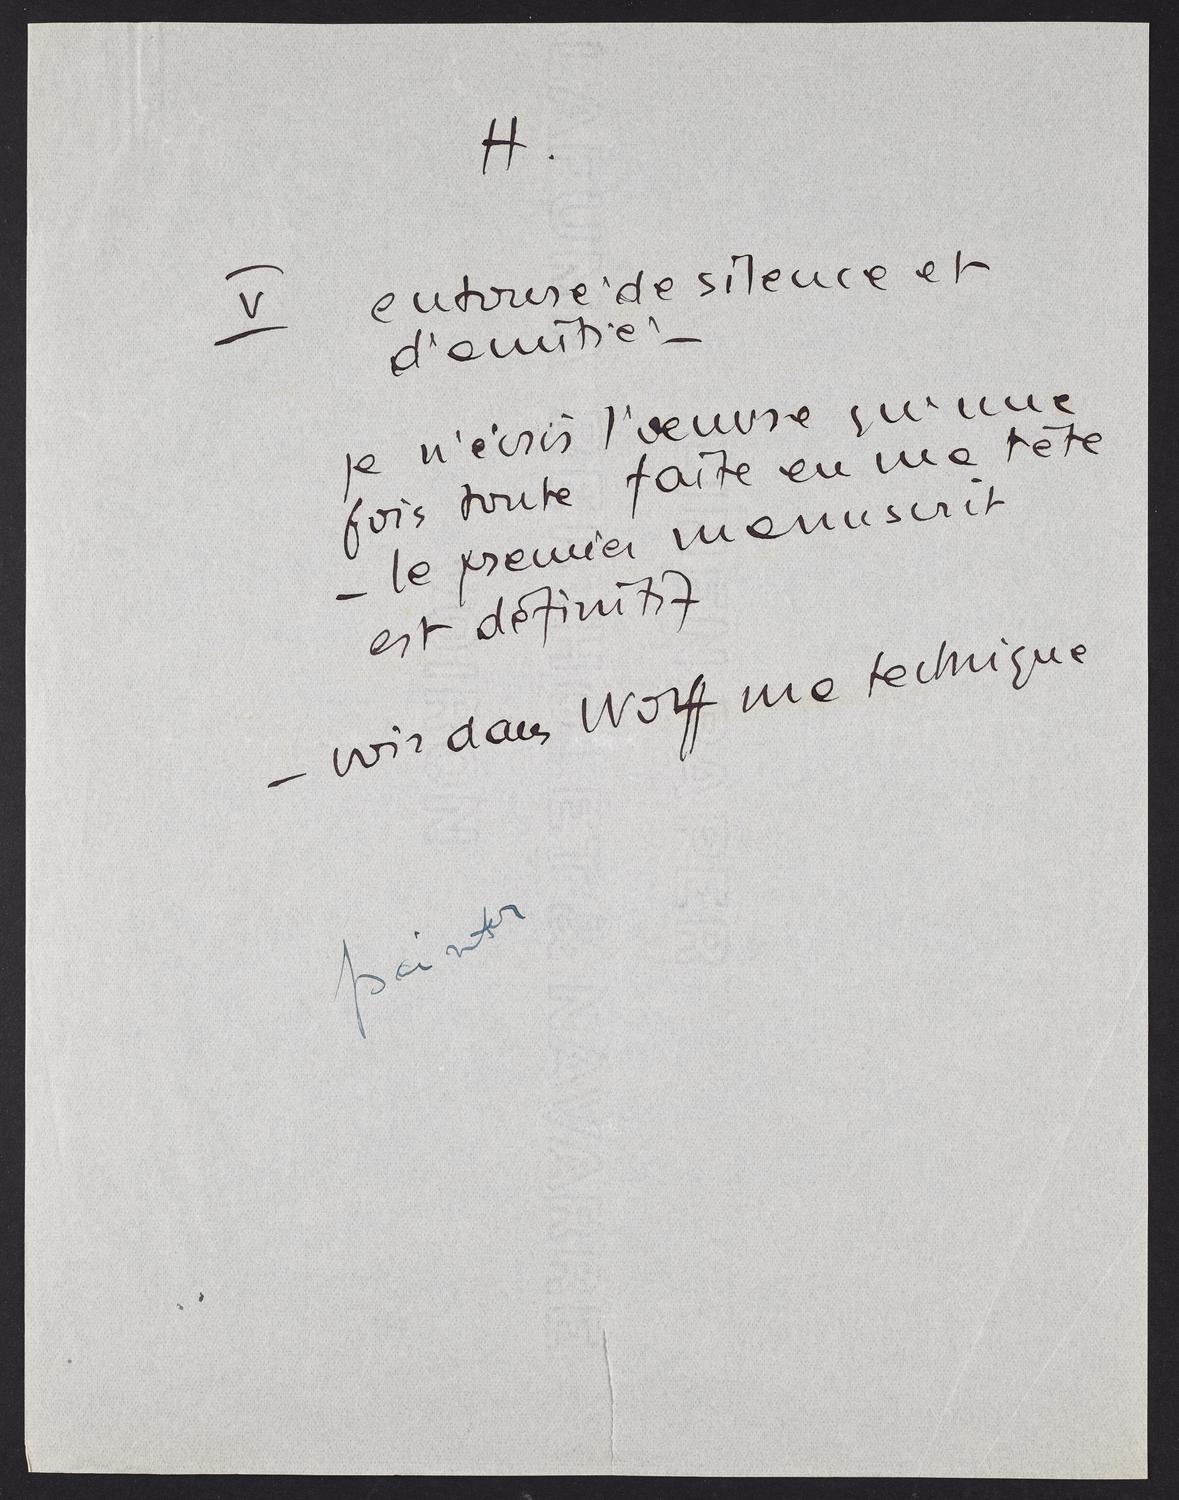 H.
V entouré de silence et
d'amitié –
je n'écris l'oeuvre qu'une
fois toute faite en ma tête
– le premier manuscrit
est définitif
– voir dans Wolff ma technique
painter